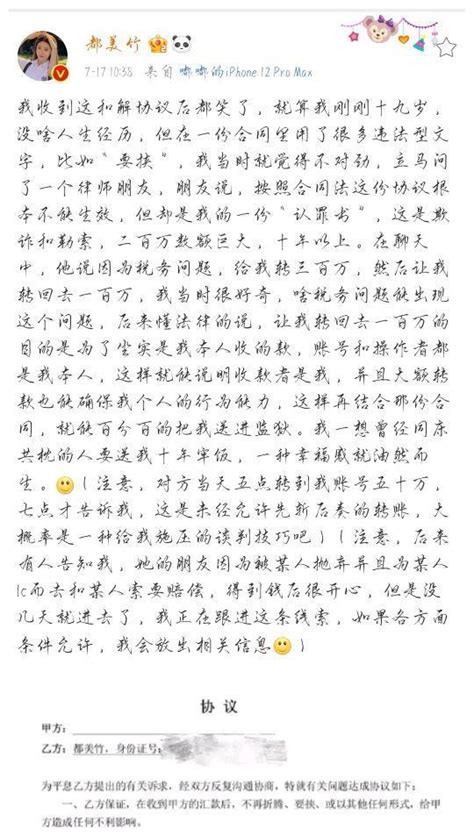 都美竹
7-17 10:38 来自 嘟嘟的iPhone 12 Pro Max
我收到这和解协议后都笑了，就算我刚刚十九岁，
没啥人生经历，但在一份合同里用了很多违法型文
字，比如“要挟”，我当时就觉得不对劲，立马问
了一个律师朋友，朋友说，按照合同法这份协议根
本不能生效，但却是我的一份“认罪书”，这是欺
诈和勒索，二百万数额巨大，十年以上。在聊天
中，他说因为税务问题，给我转三百万，然后让我
转回去一百万，我当时很好奇，啥税务问题能出现
这个问题，后来懂法律的说，让我转回去一百万的
目的是为了坐实是我本人收的款，账号和操作者都
是我本人，这样就能说明收款者是我，并且大额转
款也能确保我个人的行为能力，这样再结合那份合
同，就能百分百的把我送进监狱。我一想曾经同床
共枕的人要送我十年牢饭，一种幸福感就油然而
生。（注意，对方当天五点转到我账号五十万，
七点才告诉我，这是未经允许先斩后奏的转账，大
概率是一种给我施压的谈判技巧吧）（注意，后来
有人告知我，她的朋友因为被某人抛弃并且为某人
lc而去和某人索要赔偿，得到钱后很开心，但是没
几天就进去了，我正在跟进这条线索，如果各方面
条件允许，我会放出相关信息）
协 议
甲方：
乙方：都美竹，身份证号：
为平息乙方提出的有关诉求，经双方反复沟通协商，特就有关问题达成协议如下：
一、乙方保证，在收到甲方的汇款后，不再折腾、要挟、或以其他任何形式，给甲
方造成任何不利影响。